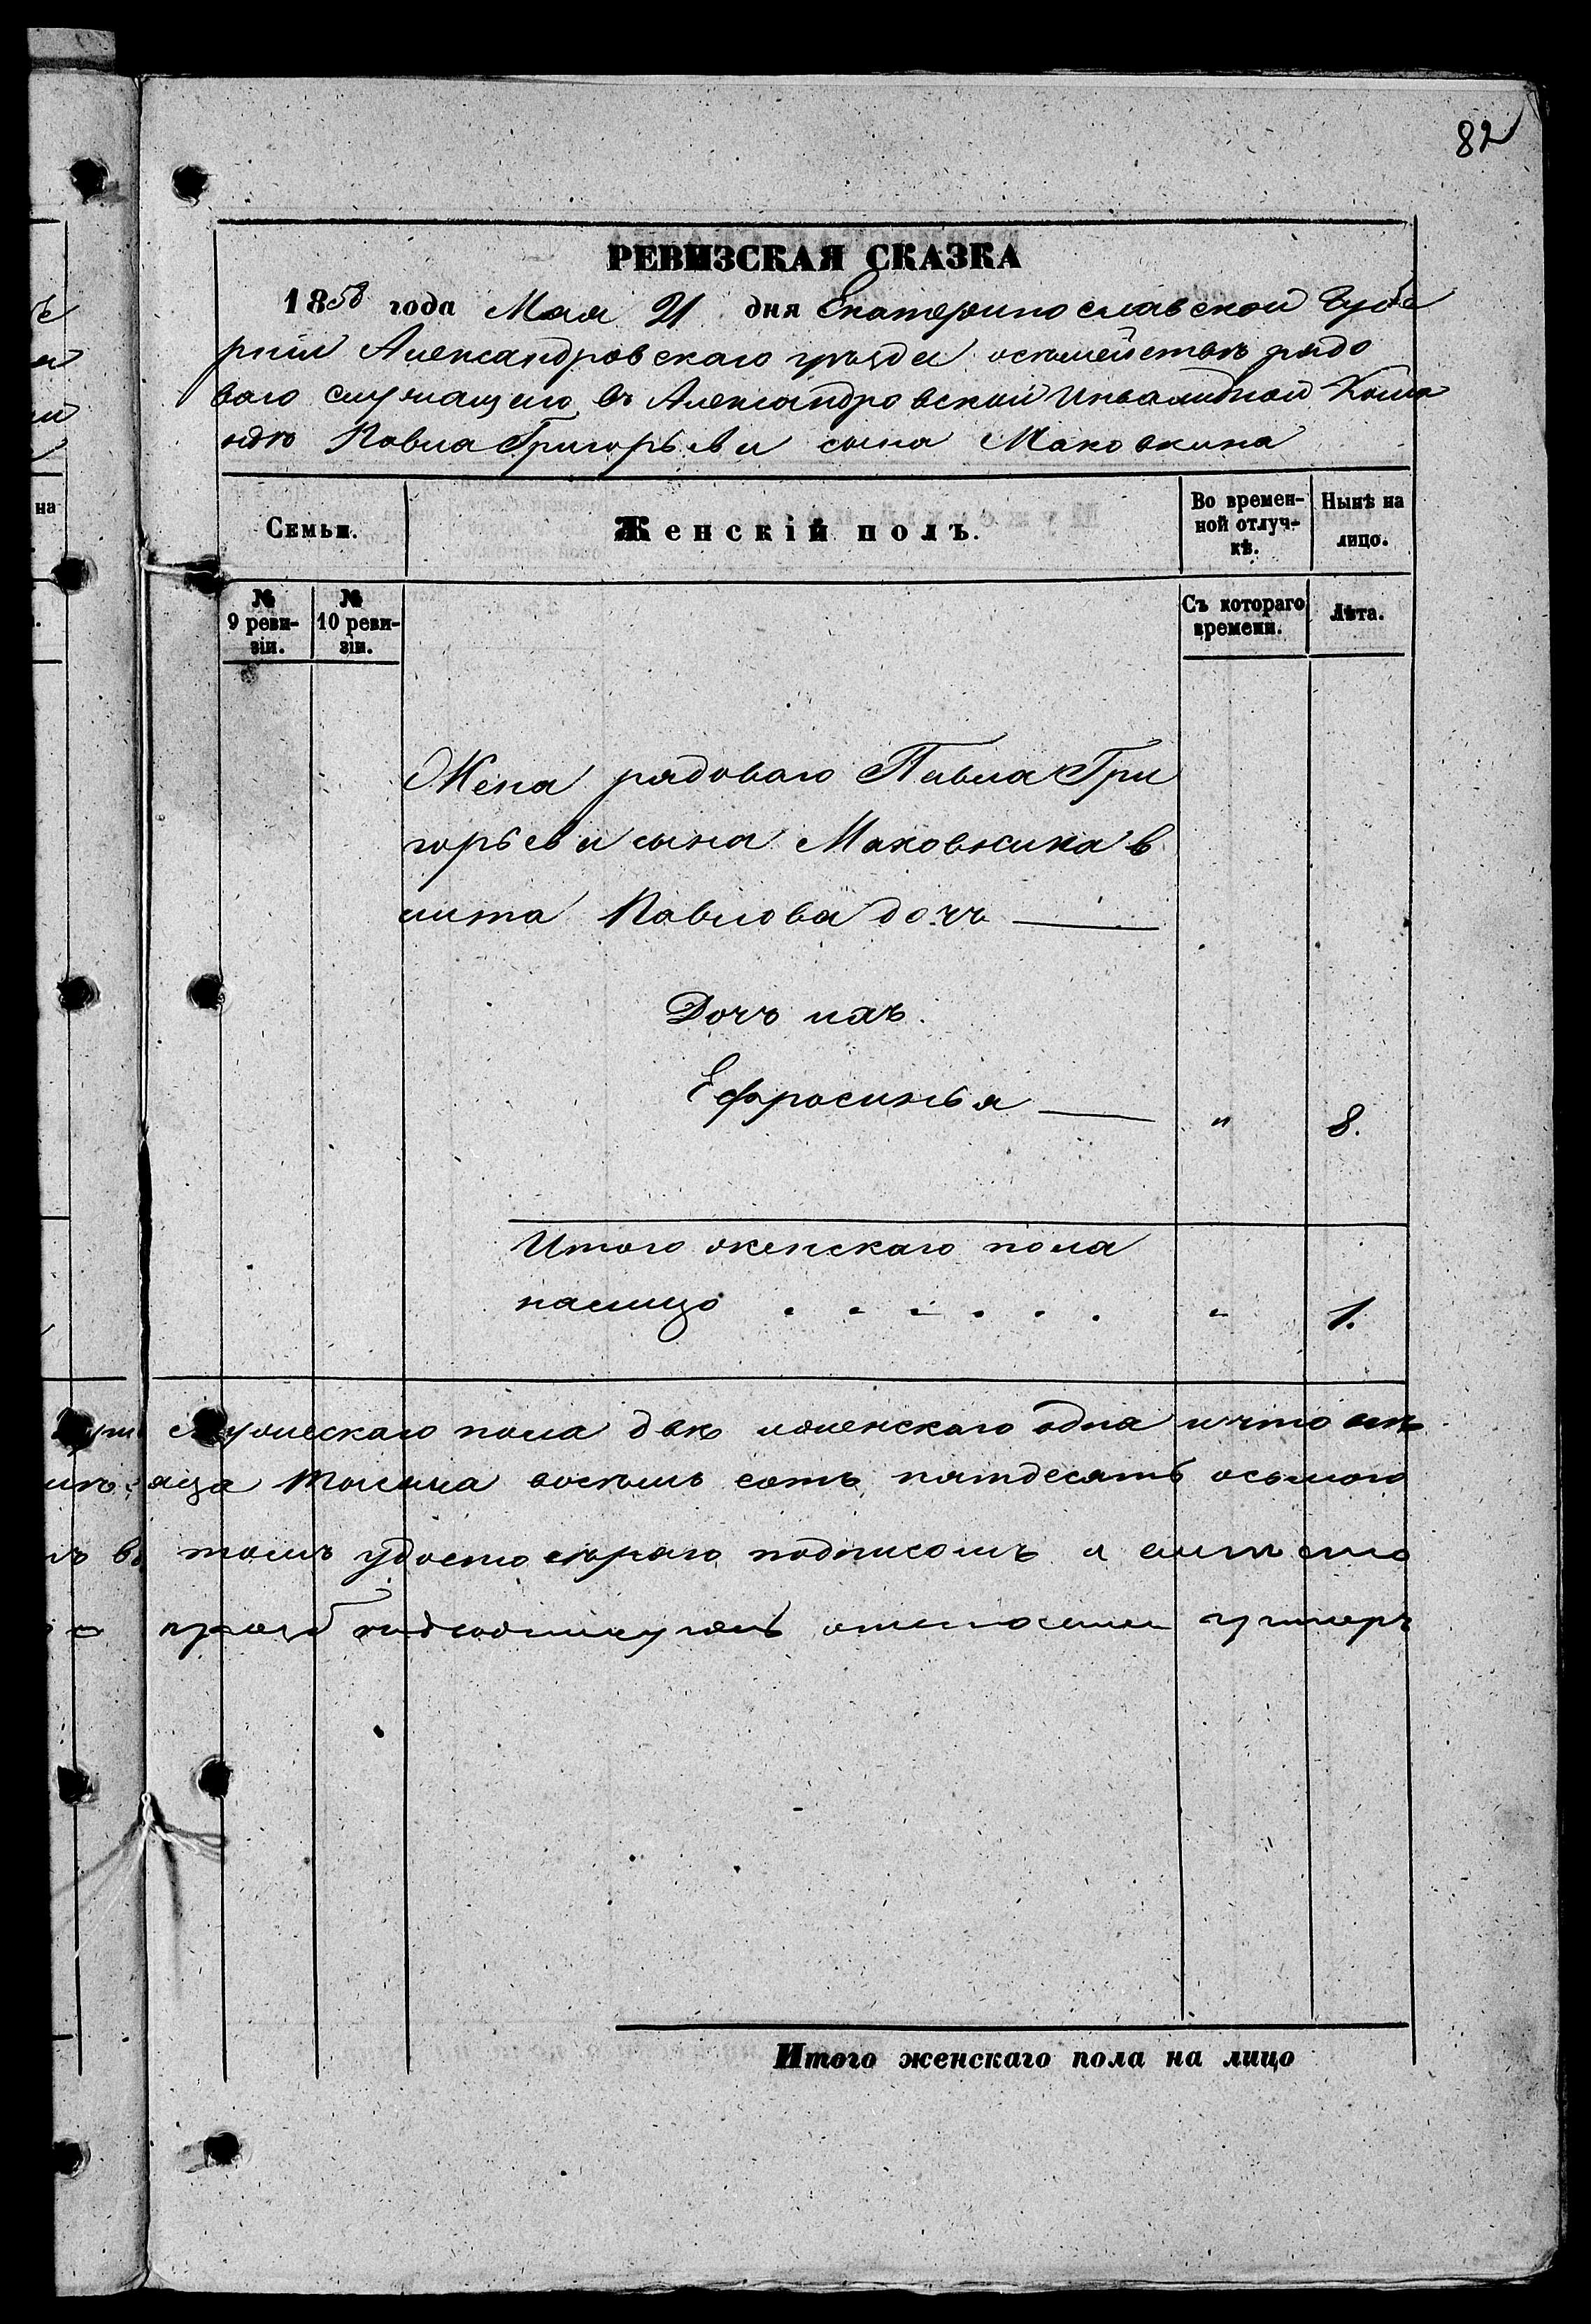 82
РЕВИЗСКАЯ СКАЗКА
1858 года Мая 21 дня Екатеринославской Губе
рнии Александровскаго уѣзда осѣмействѣ рядо
ваго служащаго въ Александровской Инвалидной Кома
ндѣ Павла Григорьева сына Маковкина
Семьи.
Женскій полъ.
Во времен-
ной отлуч-
кѣ.
Нынѣ на
лицо.
№
9 реви-
зіи.
№
10 реви-
зіи.
Съ котораго
времени.
Лѣта.
Жена рядоваго Павла Гри
горьева сына Маковкина в
Павлова дочь
Дочь ихъ.
Ефросинья " 8.
Итого женскаго пола
налицо . . . . . . " 1.
мужескаго пола двѣ женскаго одна и что
яца тысяча восемь сотъ пятдесять осьмого
томъ удосто подписомъ и
Итого женскаго пола на лицо